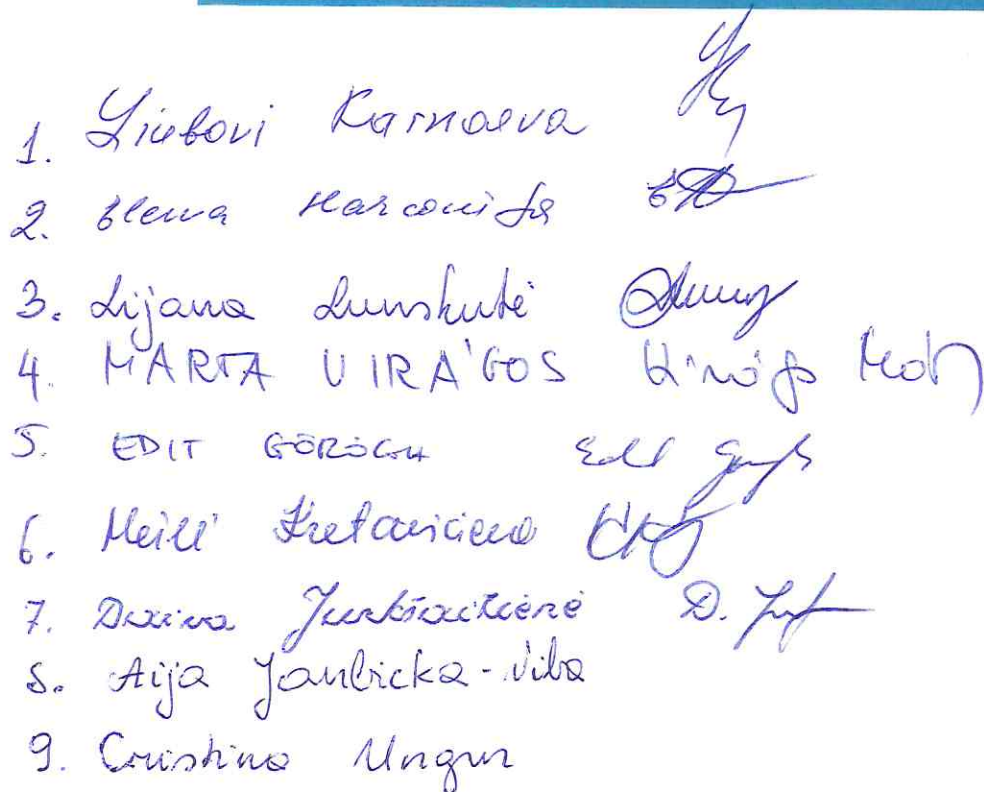 1. Liubovi Karnaeva
2. Elena Harconița
3. Lijana Lunskutė
4. MARTA VIRÁGOS Virágos Márta
5. EDIT GÖRÖGH Edit Görögh
6. Meilė Kretavičienė
7. Daiva Jurkšaitienė D.
8. Aija Janbicka-Vība
9. Cristina Ungur